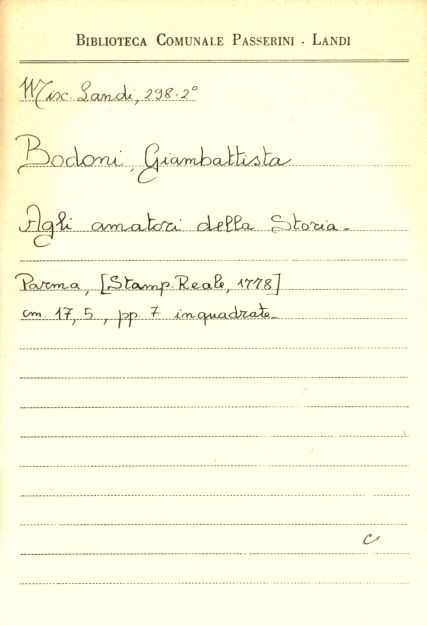 BIBLIOTECA COMUNALE PASSERINI - LANDI
Misc. Landi, 298-2°
Bodoni, Giambattista
Agli amatori della Storia.
Parma, [Stamp. Reale, 1778]
cm. 17,5, pp. 7 inquadrate.
C